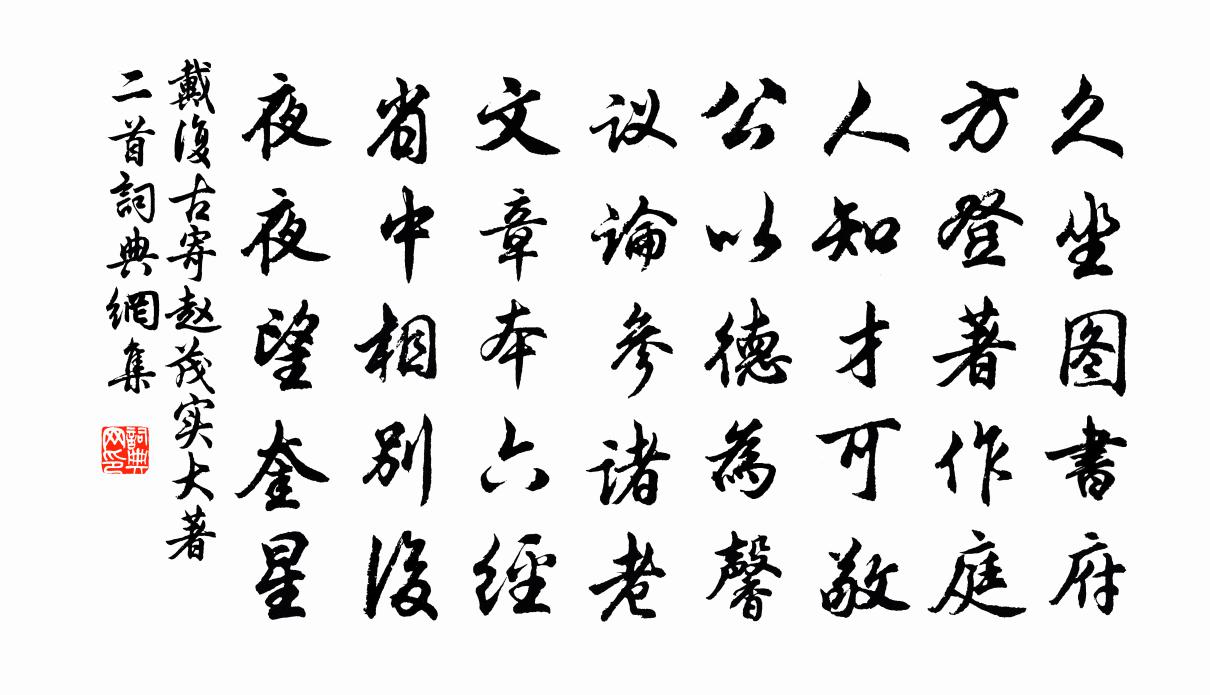 久坐图書府
方登著作庭
人知才可敬
公以德為馨
议論参诸老
文章本六經
省中相别後
夜夜望奎星
戴復古寄赵茂实大著
二首詞典網集
詞典网印